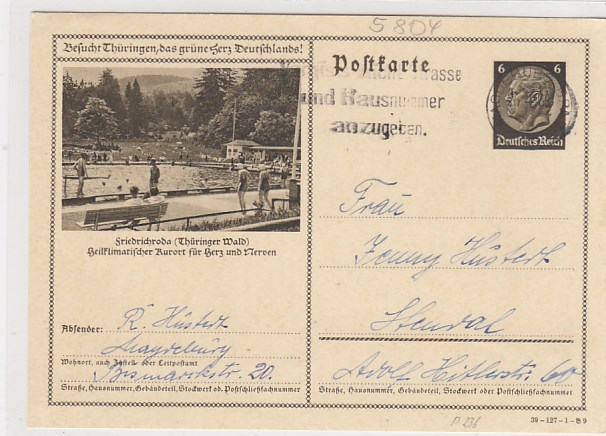 5804
Besucht Thüringen, das grüne Herz Deutschlands!
Postkarte
6 6
Deutsches Reich
Strasse
und Hausnummer
anzugeben.
Friedrichroda (Thüringer Wald)
Heilklimatischer Kurort für Herz und Nerven
Frau
Jenny Hüstedt
Stendal
Adolf Hitlerstr. 60
Absender: R. Hüstedt
Magdeburg
Wohnort, auch Zustell- oder Leitpostamt
Bismarckstr. 20
Straße, Hausnummer, Gebäudeteil, Stockwerk od. Postschließfachnummer
Straße, Hausnummer, Gebäudeteil, Stockwerk oder Postschließfachnummer
P 236
39-127-1-B9